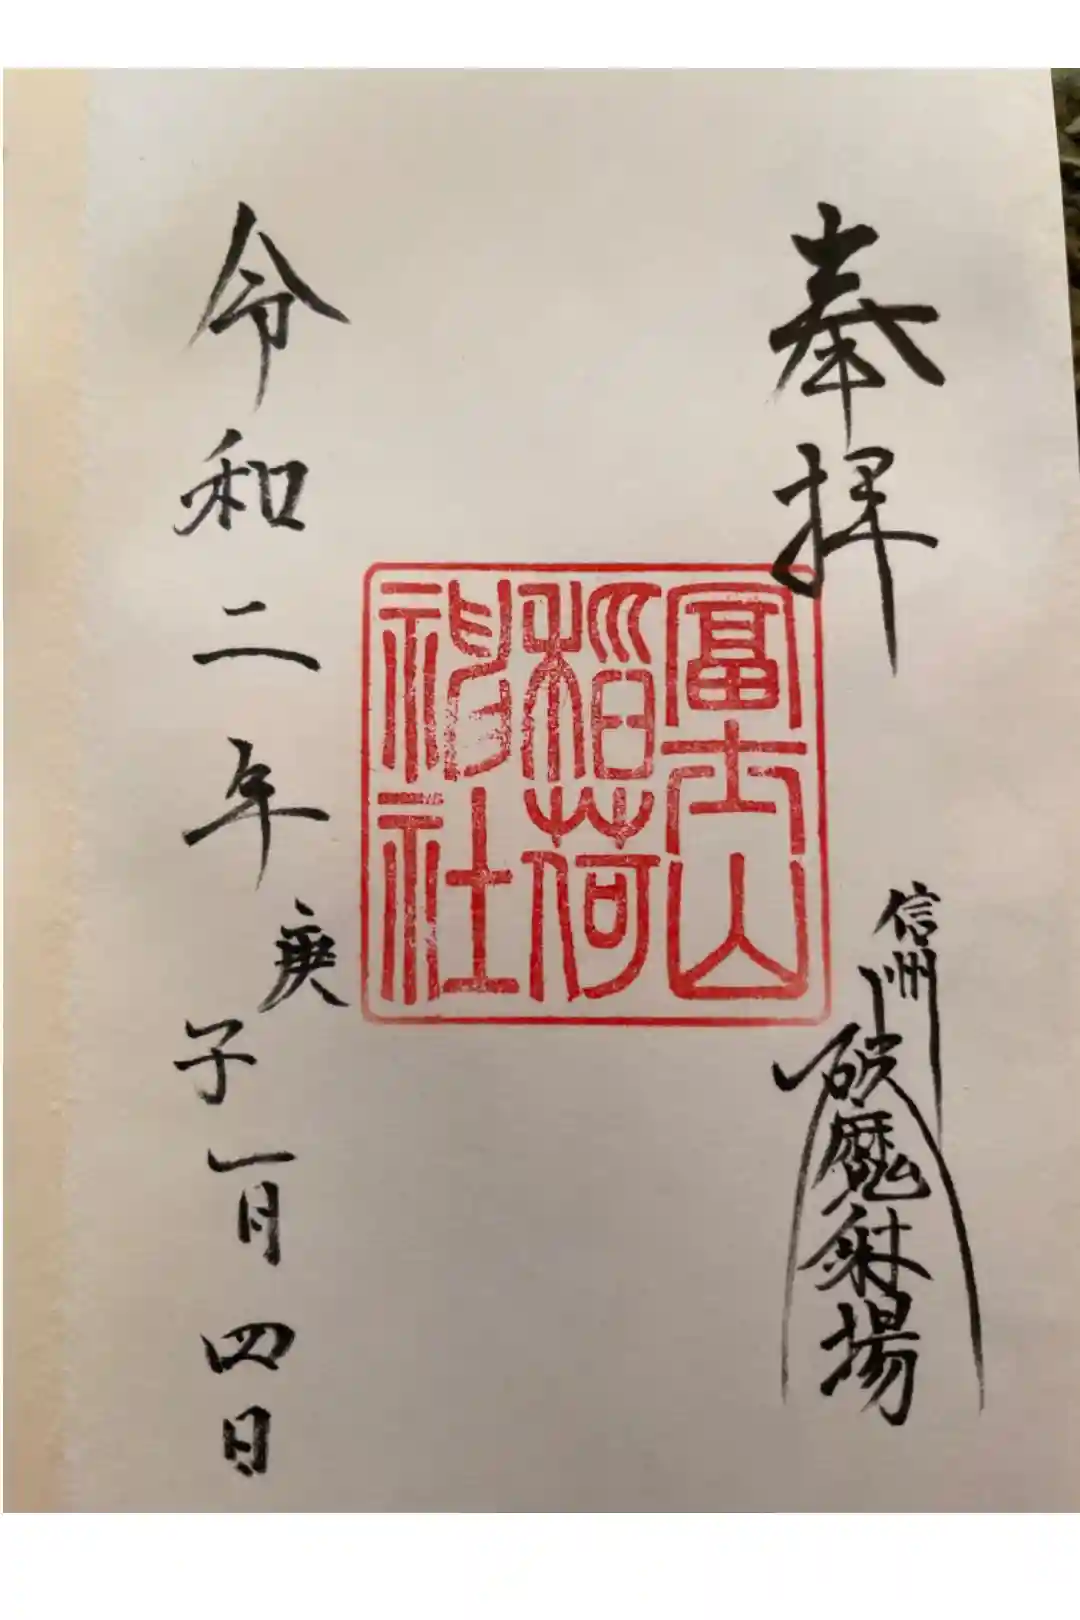 奉拝
信州
破魔射場
冨士山
稲荷
神社
令和二年庚子一月四日